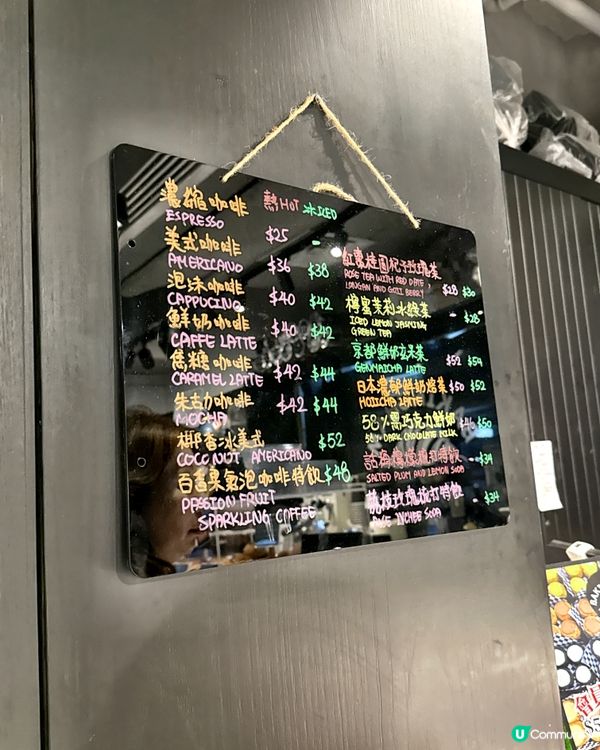 濃縮咖啡 熱HOT 冰ICED
ESPRESSO $25 -
美式咖啡
AMERICANO $36 $38
泡沫咖啡
CAPPUCINO $40 $42
鮮奶咖啡
CAFFE LATTE $40 $42
焦糖咖啡
CARAMEL LATTE $42 $44
朱古力咖啡
MOCHA $42 $44
椰香冰美式
COCONUT AMERICANO $52
百香果氣泡咖啡特飲 $48
PASSION FRUIT
SPARKLING COFFEE
紅棗桂圓杞子玫瑰茶
ROSE TEA WITH RED DATE
LONGAN AND GOJI BERRY $28 $30
檸蜜茉莉冰綠茶
ICED LEMON JASMING
GREEN TEA - $28
京都鮮奶玄米茶
GENMAICHA LATTE $52 $54
日本濃郁鮮奶焙茶 $50 $52
HOJICHA LATTE
58%黑巧克力鮮奶 $46 $50
58% DARK CHOCOLATE MILK
話梅檸檬梳打特飲 - $34
SALTED PLUM AND LEMON SODA
荔枝玫瑰梳打特飲 - $34
ROSE
SODA
U Commun